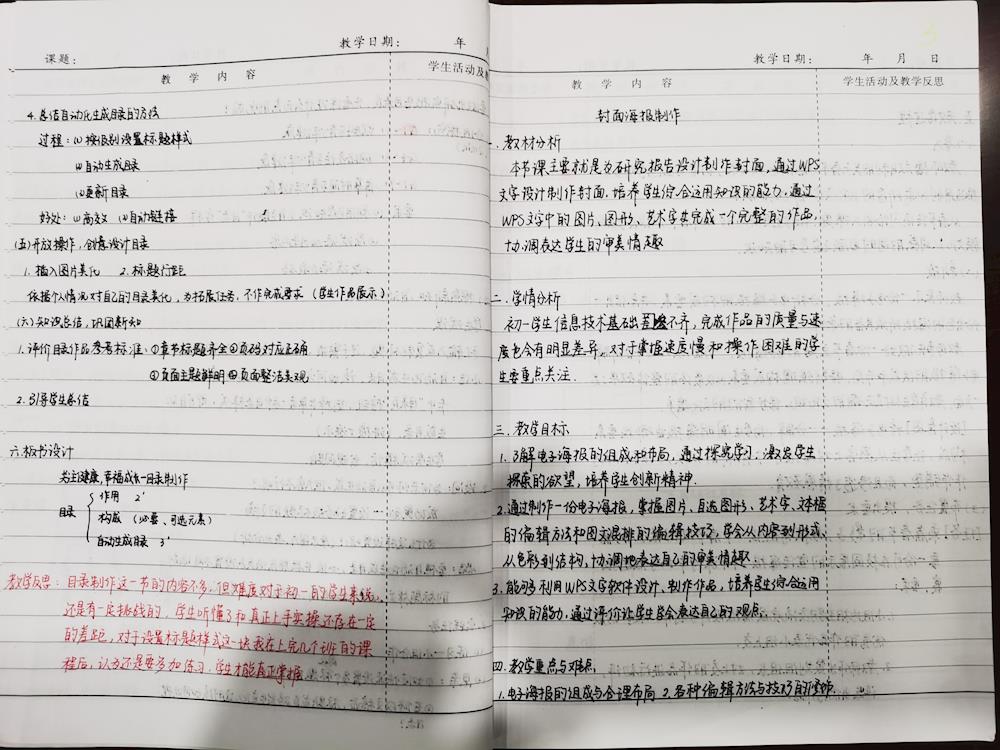 课题:
教学日期: 年
教 学 内 容
学生活动及
4.总结自动化生成目录的方法
过程:(1)按级别设置标题样式
(2)自动生成目录
(3)更新目录
好处:(1)高效 (2)自动链接
(五)开放操作,创意设计目录
1.插入图片美化 2.标题行距
依据个人情况对自己的目录美化,为拓展任务,不作完成要求(学生作品展示)
(六)知识总结,巩固新知
1.评价目录作品参考标准:①章节标题齐全②页码对应正确
③页面主题鲜明④页面整洁美观
2.引导学生总结
六.板书设计
关注健康,幸福成长—目录制作
目录
作用 2'
构成(必要、可选元素)
自动生成目录 3'
教学反思:目录制作这一节的内容不多,但难度对于初一的学生来说,
还是有一定挑战的,学生听懂了和真正上手实操还存在一定
的差距,对于设置标题样式这一块我在上完几个班的课
程后,认为还是要多加练习,学生才能真正掌握
教学日期: 年 月 日
教 学 内 容
学生活动及教学反思
封面海报制作
一.教材分析
本节课主要就是为研究报告设计制作封面,通过WPS
文字设计制作封面,培养学生综合运用知识的能力,通过
WPS文字中的图片、图形、艺术字来完成一个完整的作品,
协调表达学生的审美情趣
二.学情分析
初一学生信息技术基础出不齐,完成作品的质量与速
度也会有明显差异,对于掌握速度慢和操作困难的学
生要重点关注.
三.教学目标
1.了解电子海报的组成和布局,通过探究学习,激发学生
探索的欲望,培养学生创新精神.
2.通过制作一份电子海报,掌握图片、自选图形、艺术字、文本框
的编辑方法和图文混排的编辑技巧,学会从内容到形式、
从色彩到结构,协调地表达自己的审美情趣.
3.能够利用WPS文字软件设计、制作作品,培养学生综合运用
知识的能力,通过评价让学生学会表达自己的观点.
四.教学重点与难点
1.电子海报的组成与合理布局 2.各种编辑方法与技巧的